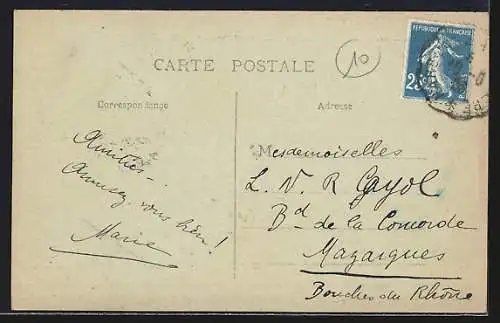 CARTE POSTALE
10
REPUBLIQUE FRANÇAISE
25
Correspondance
Adresse
Amitiés -
Amusez-vous bien !
Marie
Mesdemoiselles
L. V. R Gayol
Bd de la Concorde
Mazargues
Bouches du Rhône